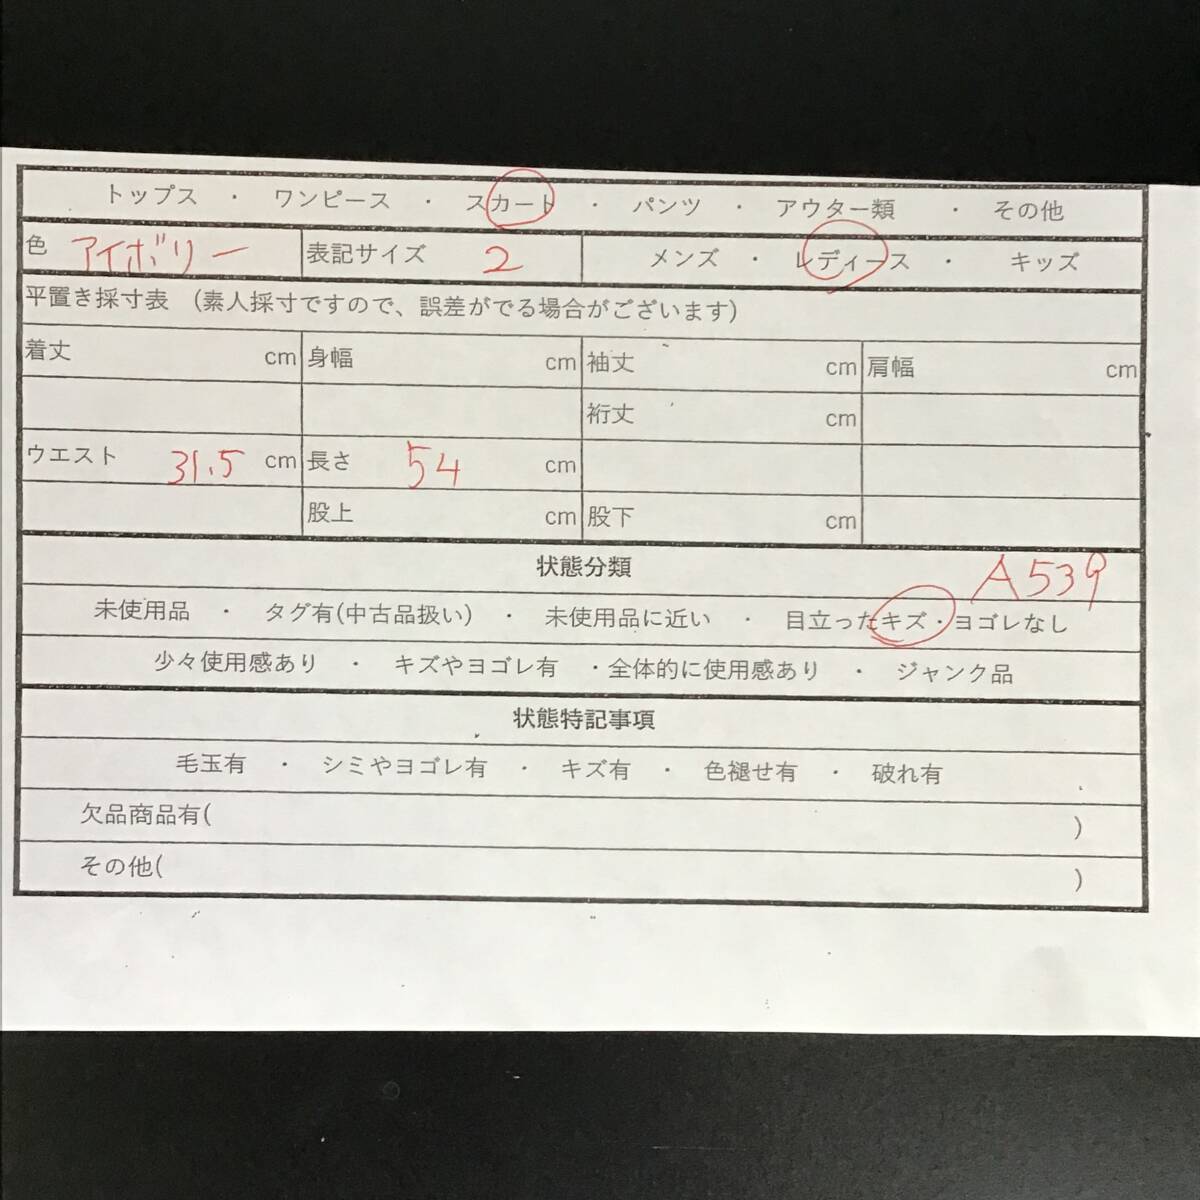 トップス ・ ワンピース ・ スカート ・ パンツ ・ アウター類 ・ その他
色 アイボリー 表記サイズ 2 メンズ ・ レディース ・ キッズ
平置き採寸表 (素人採寸ですので、誤差がでる場合がございます)
着丈 cm 身幅 cm 袖丈 cm 肩幅 cm
裄丈 cm
ウエスト 31.5 cm 長さ 54 cm
股上 cm 股下 cm
状態分類 A539
未使用品 ・ タグ有(中古品扱い) ・ 未使用品に近い ・ 目立ったキズ・ヨゴレなし
少々使用感あり ・ キズやヨゴレ有 ・全体的に使用感あり ・ ジャンク品
状態特記事項
毛玉有 ・ シミやヨゴレ有 ・ キズ有 ・ 色褪せ有 ・ 破れ有
欠品商品有( )
その他( )